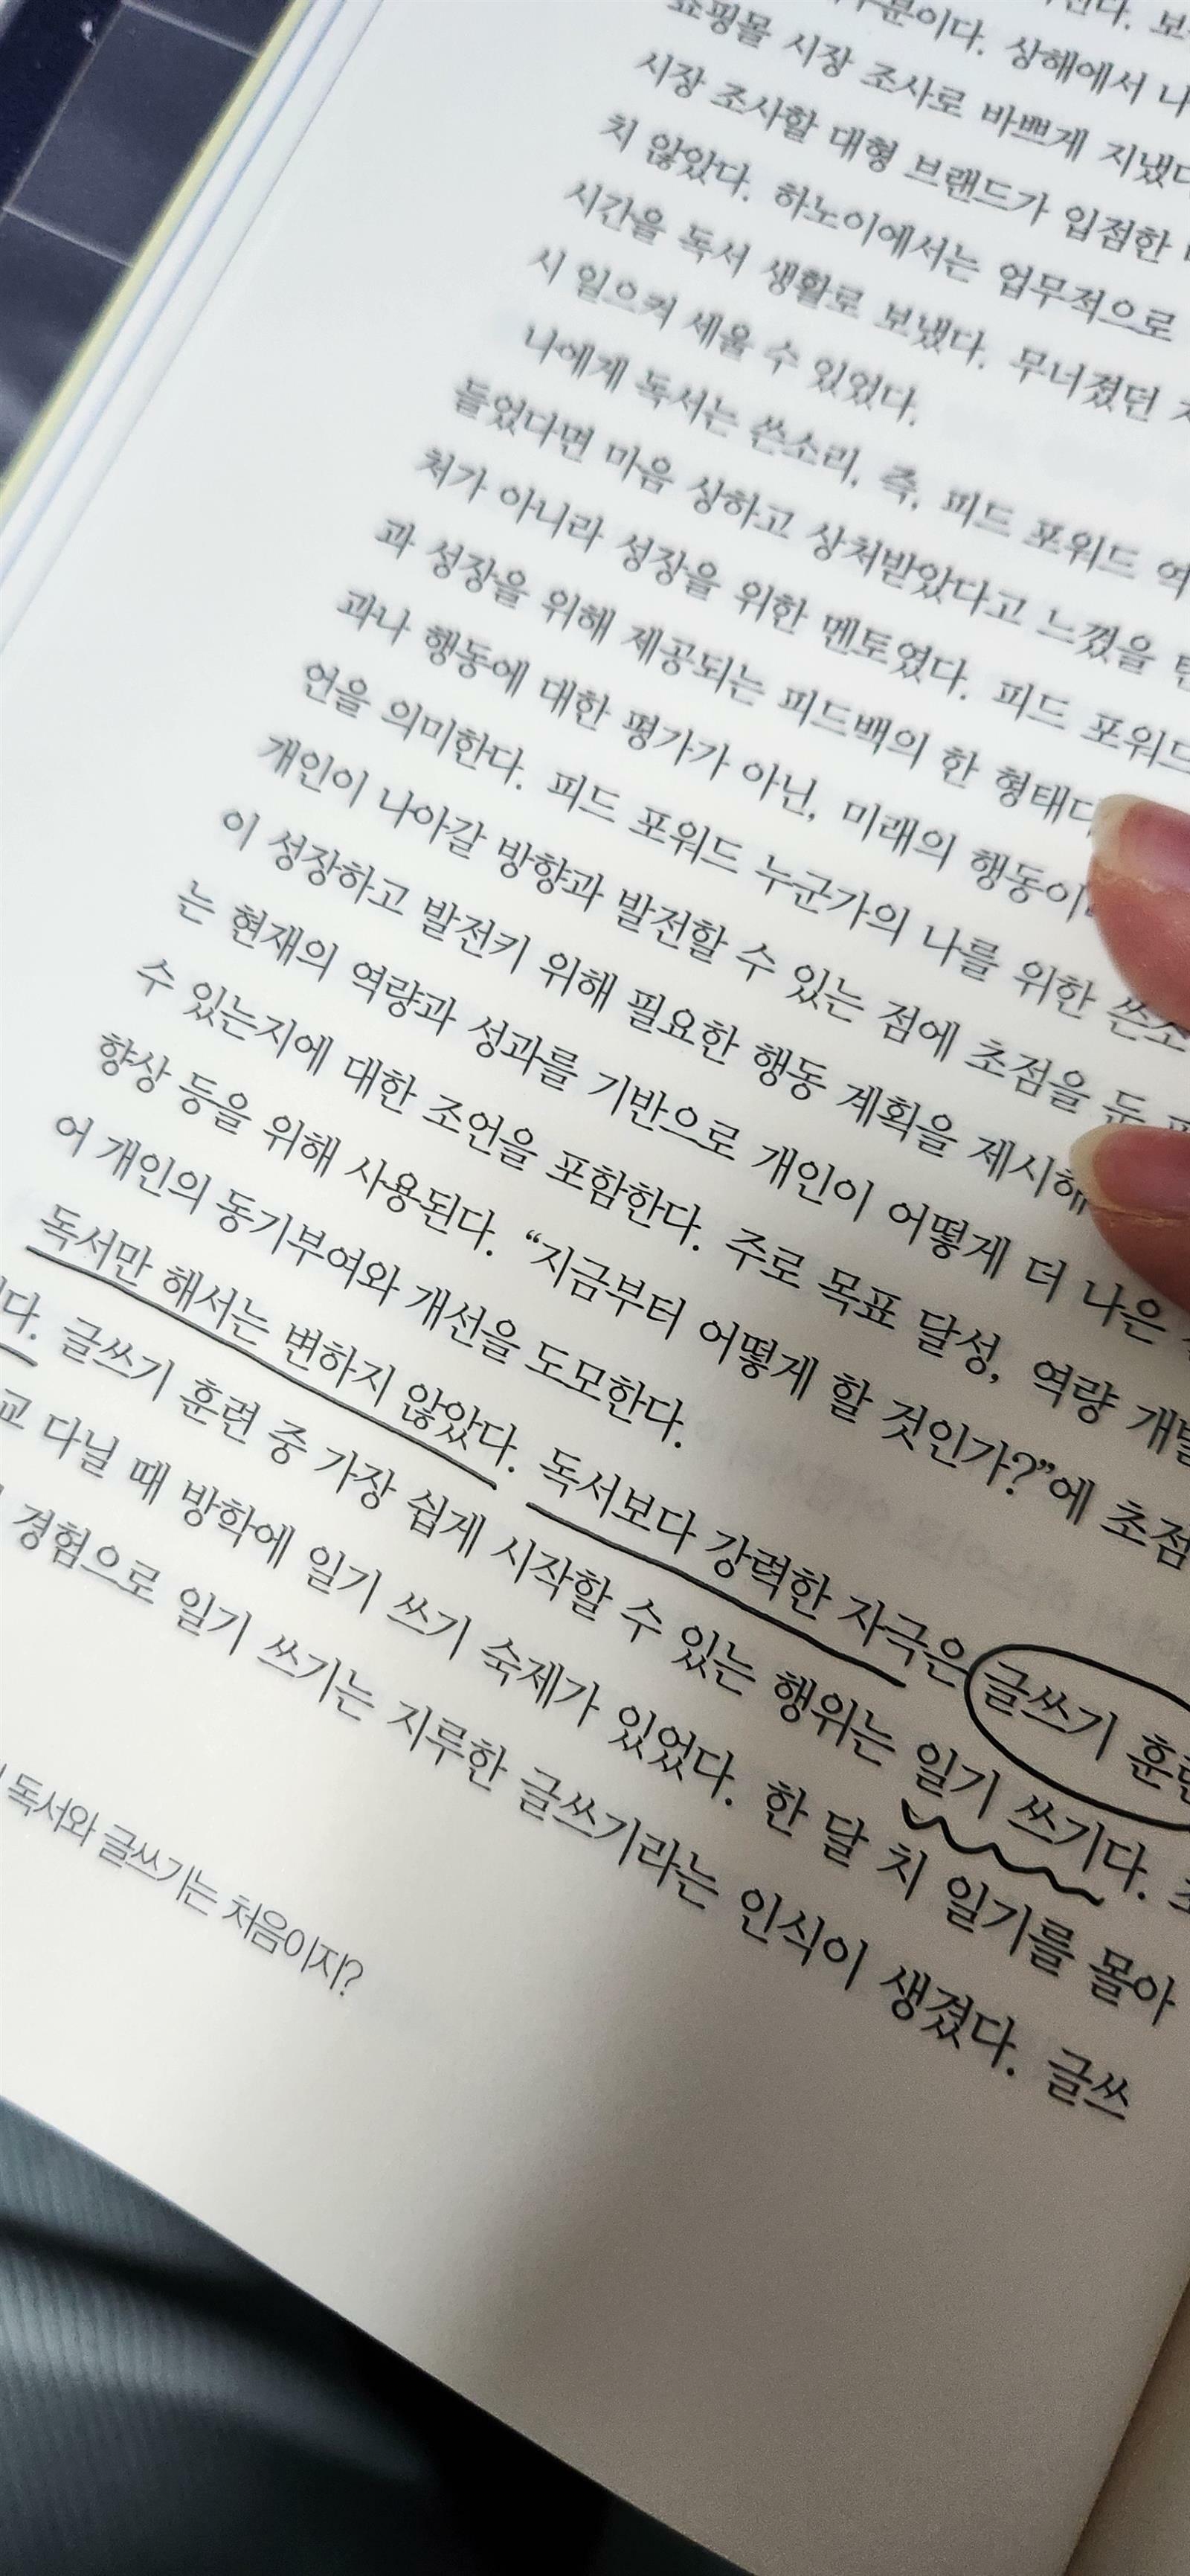 상해에서
쇼핑몰 시장 조사로 바쁘게 지냈다
시장 조사할 대형 브랜드가 입점한
치 않았다. 하노이에서는 업무적으로
시간을 독서 생활로 보냈다. 무너졌던
시 일으켜 세울 수 있었다.
나에게 독서는 쓴소리, 즉, 피드 포워드
들었다면 마음 상하고 상처받았다고 느꼈을
처가 아니라 성장을 위한 멘토였다. 피드 포워드
과 성장을 위해 제공되는 피드백의 한 형태다
과나 행동에 대한 평가가 아닌, 미래의 행동이
언을 의미한다. 피드 포워드 누군가의 나를 위한 쓴소
개인이 나아갈 방향과 발전할 수 있는 점에 초점을 둔
이 성장하고 발전키 위해 필요한 행동 계획을 제시해
는 현재의 역량과 성과를 기반으로 개인이 어떻게 더 나은
수 있는지에 대한 조언을 포함한다. 주로 목표 달성, 역량 개발
향상 등을 위해 사용된다. “지금부터 어떻게 할 것인가?”에 초점
어 개인의 동기부여와 개선을 도모한다.
독서만 해서는 변하지 않았다. 독서보다 강력한 자극은 글쓰기 훈련
다. 글쓰기 훈련 중 가장 쉽게 시작할 수 있는 행위는 일기 쓰기다.
교 다닐 때 방학에 일기 쓰기 숙제가 있었다. 한 달 치 일기를 몰아
경험으로 일기 쓰기는 지루한 글쓰기라는 인식이 생겼다. 글쓰
독서와 글쓰기는 처음이지?